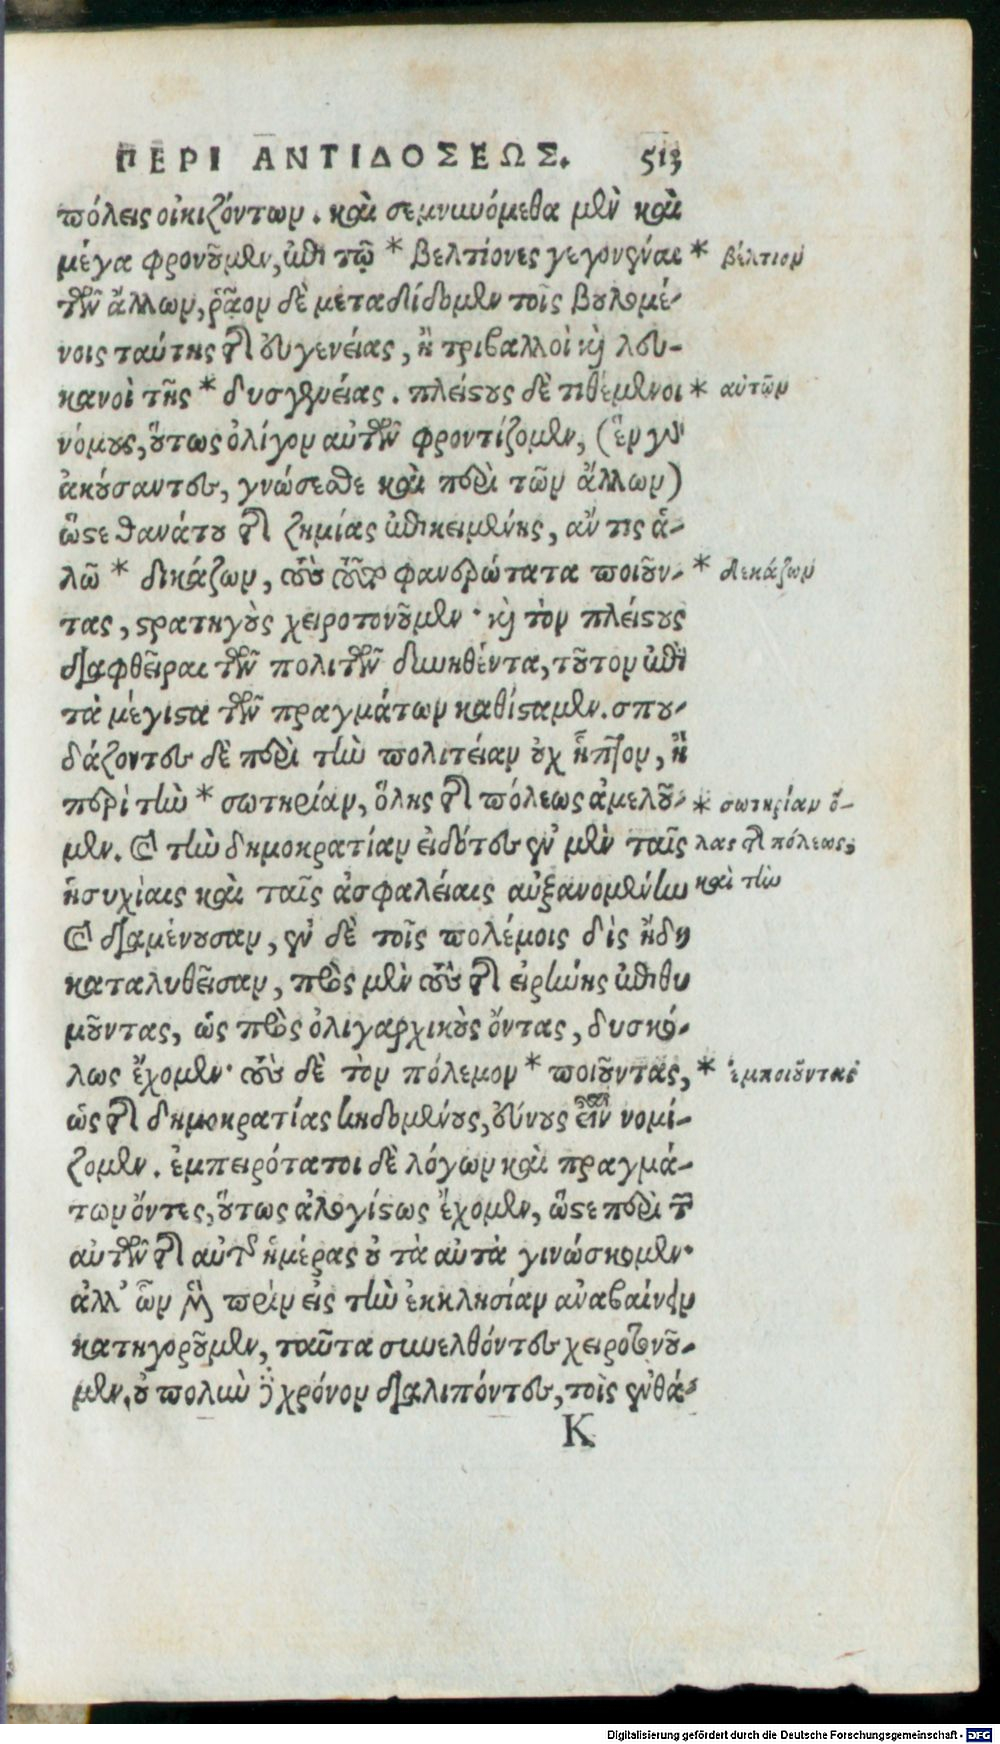 ΠΕΡΙ ΑΝΤΙΔΟΣΕΩΣ. 513
πόλεις οἰκιζόντων. καὶ σεμνυνόμεθα μὲν καὶ
μέγα φρονοῦμεν, ἐπὶ τῷ * βελτίονες γεγονέναι * βέλτιον
τῶν ἄλλων, ῥᾷον δὲ μεταδίδομεν τοῖς βουλομέ-
νοις ταύτης τῆς εὐγενείας, ἢ τριβαλλοὶ καὶ λευ-
κανοὶ τῆς * δυσγενείας. πλείστους δὲ τιθέμενοι * αὑτῶν
νόμους, οὕτως ὀλίγον αὐτῶν φροντίζομεν, (ἓν γὰρ
ἀκούσαντες, γνώσεσθε καὶ περὶ τῶν ἄλλων)
ὥστε θανάτου τῆς ζημίας ἐπικειμένης, ἄν τις ἁ-
λῷ * δικάζων, τοὺς τοῦτο φανερώτατα ποιοῦν- * δεκάζων
τας, στρατηγοὺς χειροτονοῦμεν· καὶ τὸν πλείστους
διαφθεῖραι τῶν πολιτῶν δυνηθέντα, τοῦτον ἐπὶ
τὰ μέγιστα τῶν πραγμάτων καθίσταμεν. σπου-
δάζοντες δὲ περὶ τὴν πολιτείαν οὐχ ἧττον, ἢ
περὶ τὴν * σωτηρίαν, ὅλης τῆς πόλεως ἀμελοῦ- * σωτηρίαν ὅ-
μεν. καὶ τὴν δημοκρατίαν εἰδότες ἐν μὲν ταῖς λας τῆς πόλεως,
ἡσυχίαις καὶ ταῖς ἀσφαλείαις αὐξανομένην καὶ τὴν
καὶ διαμένουσαν, ἐν δὲ τοῖς πολέμοις δὶς ἤδη
καταλυθεῖσαν, πρὸς μὲν τοὺς τῆς εἰρήνης ἐπιθυ
μοῦντας, ὡς πρὸς ὀλιγαρχικοὺς ὄντας, δυσκό-
λως ἔχομεν· τοὺς δὲ τὸν πόλεμον * ποιοῦντας, * ἐμποιοῦντας
ὡς τῆς δημοκρατίας κηδομένους, εὔνους εἶναι νομί-
ζομεν. ἐμπειρότατοι δὲ λόγων καὶ πραγμά-
των ὄντες, οὕτως ἀλογίστως ἔχομεν, ὥστε περὶ τῶν
αὐτῶν τῆς αὐτῆς ἡμέρας οὐ τὰ αὐτὰ γινώσκομεν·
ἀλλ' ὧν μὲν πρὶν εἰς τὴν ἐκκλησίαν ἀναβαίνειν
κατηγοροῦμεν, ταῦτα συνελθόντες χειροτονοῦ-
μεν, οὐ πολὺν δὲ χρόνον διαλιπόντες, τοῖς ἐνθά-
K
Digitalisierung gefördert durch die Deutsche Forschungsgemeinschaft - DFG